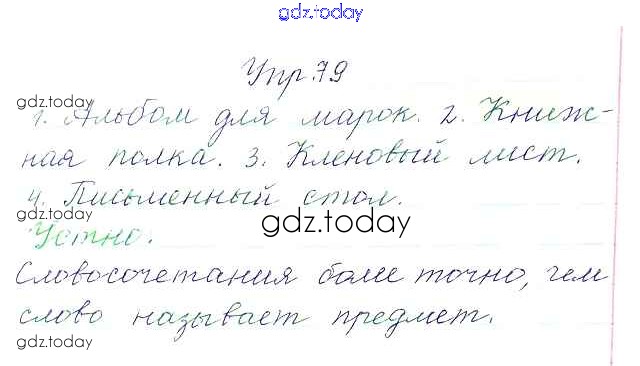 gdz.today
Упр.79
gdz.today
1. Альбом для марок. 2. Книж-
ная полка. 3. Кленовый лист.
gdz.today
4. Письменный стол.
gdz.today
Устно.
gdz.today
Словосочетания более точно, чем
слово называет предмет.
gdz.today